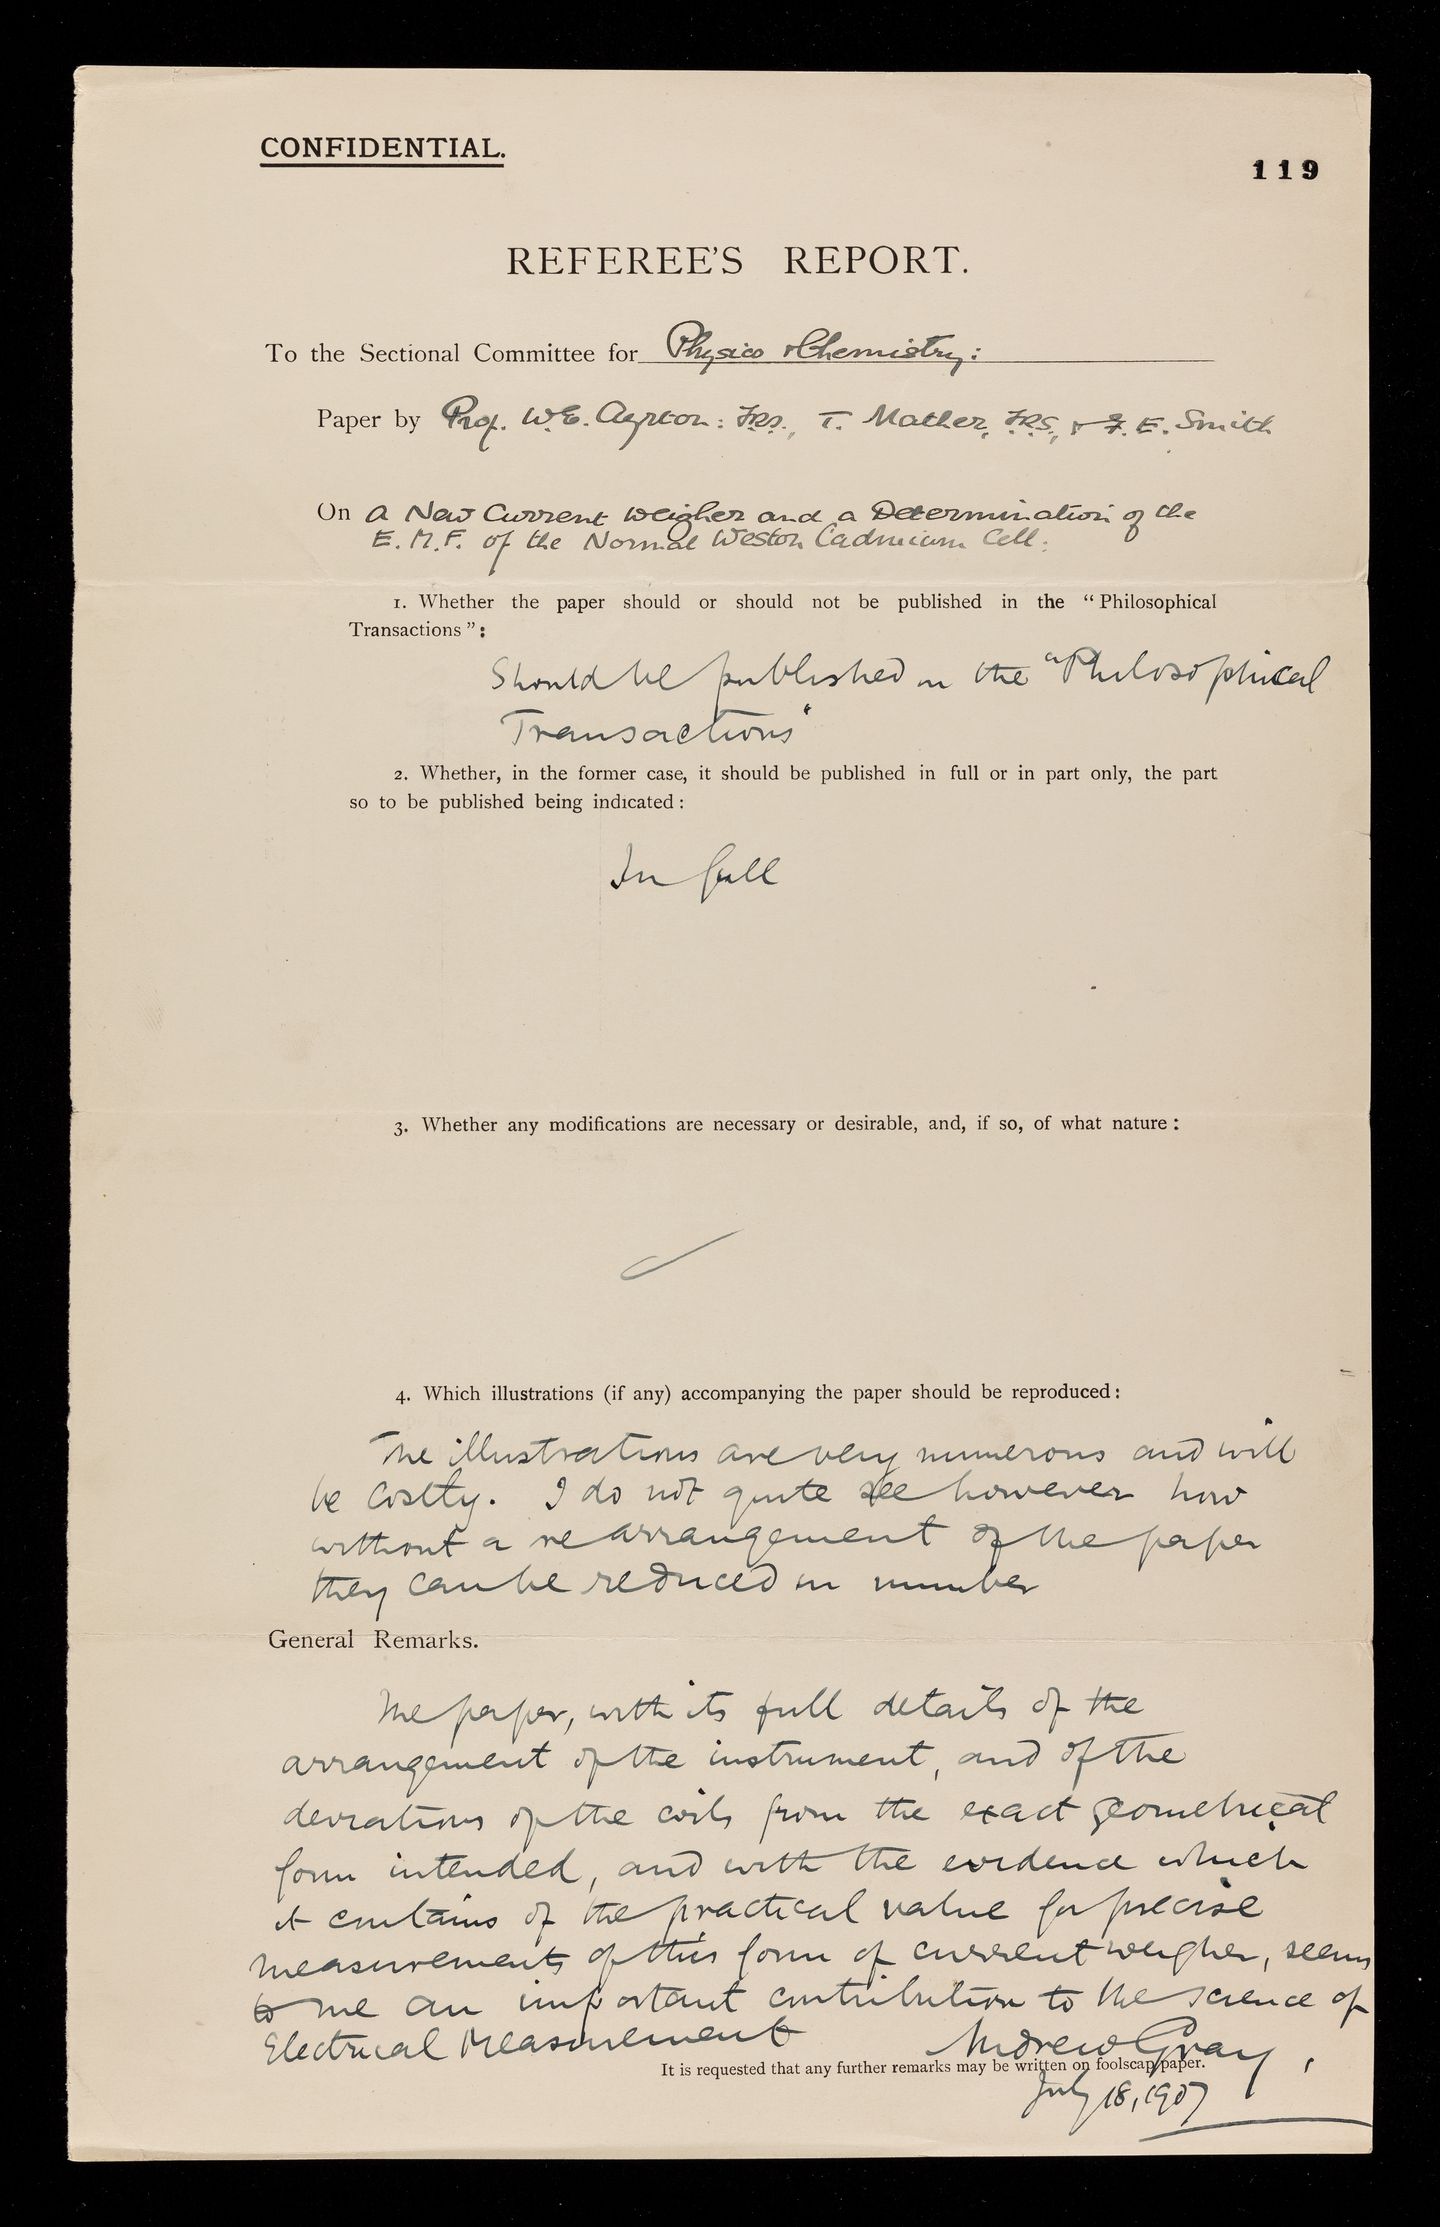 CONFIDENTIAL.
119
REFEREE'S REPORT.
To the Sectional Committee for Physics & Chemistry:
Paper by Prof. W.E. Ayrton: FRS., T. Mather, FRS., & F. E. Smith
On A New Current Weigher and a Determination of the
E.M.F. of the Normal Weston Cadmium Cell:
1. Whether the paper should or should not be published in the “Philosophical
Transactions”:
Should be published in the "Philosophical
Transactions"
2. Whether, in the former case, it should be published in full or in part only, the part
so to be published being indicated:
In full
3. Whether any modifications are necessary or desirable, and, if so, of what nature:
4. Which illustrations (if any) accompanying the paper should be reproduced:
The illustrations are very numerous and will
be costly. I do not quite see however how
without a rearrangement of the paper
they can be reduced in number
General Remarks.
The paper, with its full details of the
arrangement of the instrument, and of the
deviations of the coils from the exact geometrical
form intended, and with the evidence which
it contains of the practical value for precise
measurements of this form of current weigher, seems
to me an important contribution to the science of
Electrical Measurement
Andrew Gray,
It is requested that any further remarks may be written on foolscap paper.
July 18, 1907